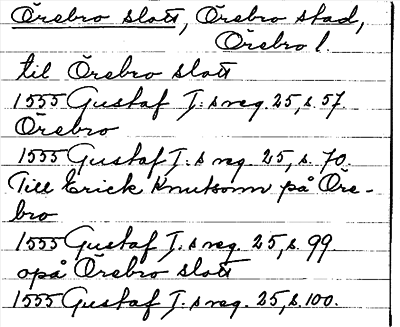 Örebro slott, Örebro stad,
Örebro l.
till Örebro slott
1555 Gustaf I:s reg. 25, s. 57.
Örebro
1555 Gustaf I:s reg. 25, s. 70.
Till Erick Knutsonn på Öre-
bro
1555 Gustaf I:s reg. 25, s. 99
opå Örebro slott
1555 Gustaf I:s reg. 25, s. 100.